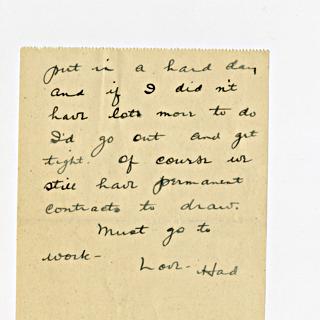 put in a hard day
and if I did n't
have lots more to do
I'd go out and get
tight. Of course we
still have permanent
contracts to draw.
Must go to
work-
Love- Had